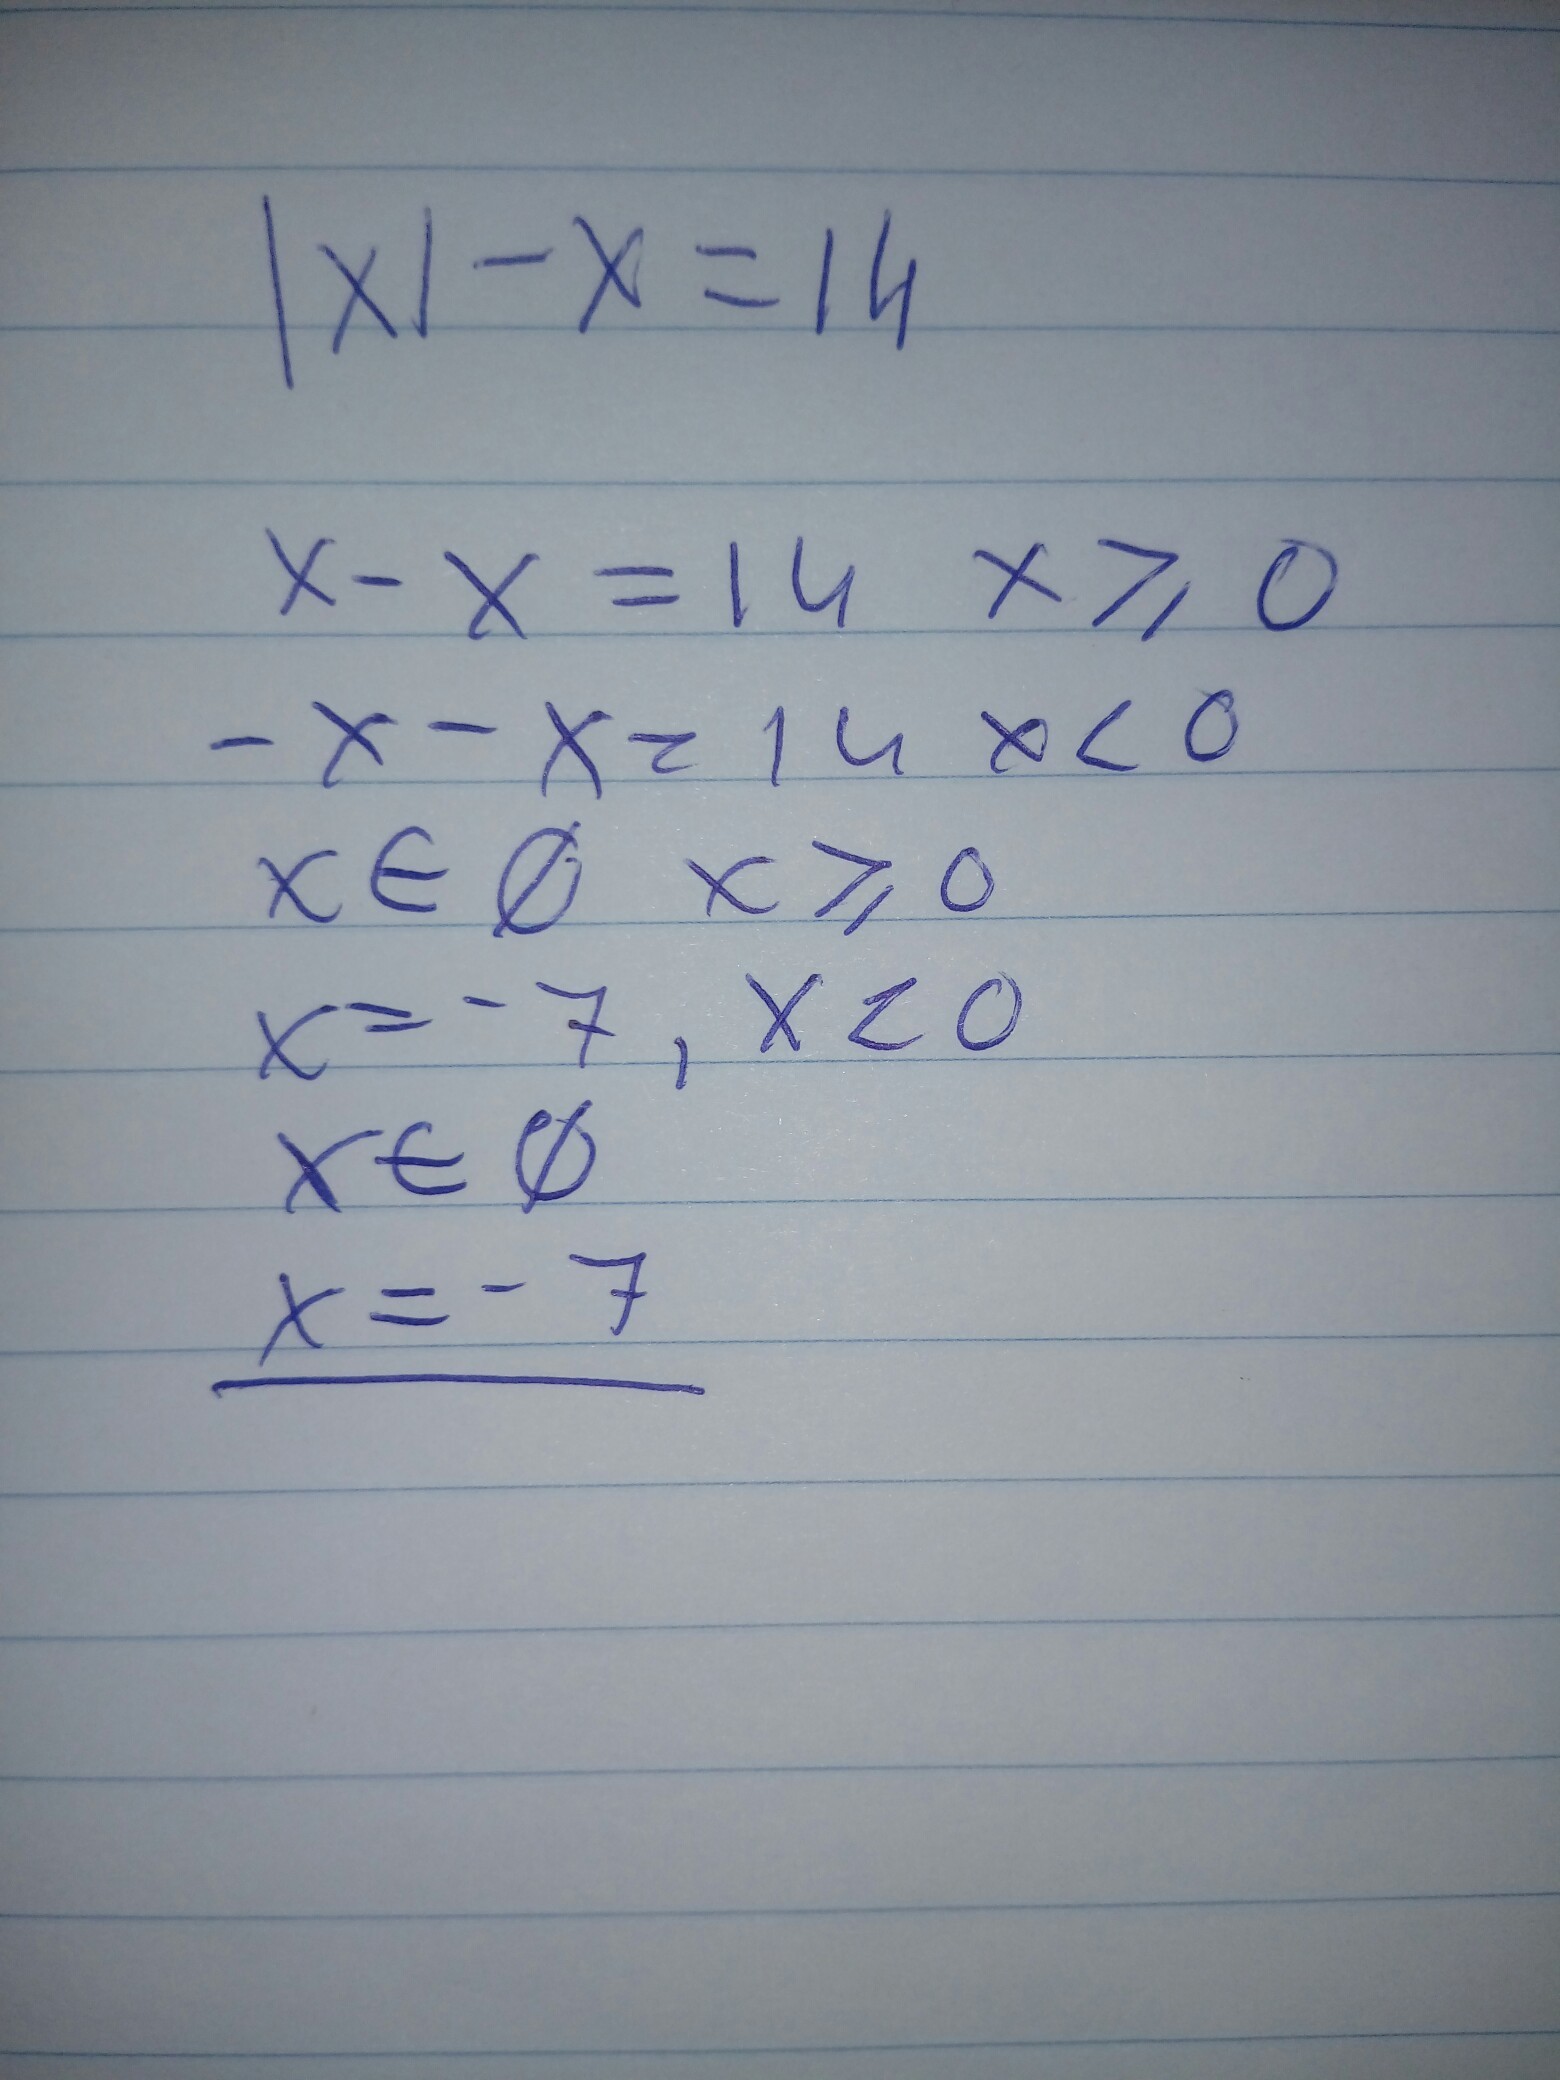 |x| - x = 14
x - x = 14 x ⩾ 0
- x - x = 14 x < 0
x ∈ ∅ x ⩾ 0
x = - 7, x < 0
x ∈ ∅
x = - 7